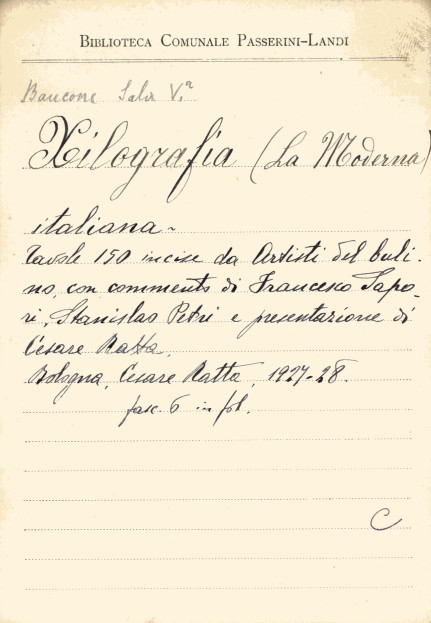 BIBLIOTECA COMUNALE PASSERINI-LANDI
Bancone Sala V.a
Xilografia (La Moderna)
italiana~
Tavole 150 incise da Artisti del buli-
no, con commenti di Francesco Sapo-
ri, Stanislao Petri e presentazione di
Cesare Ratta.
Bologna, Cesare Ratta, 1927-28.
fasc. 6 in fol.
C